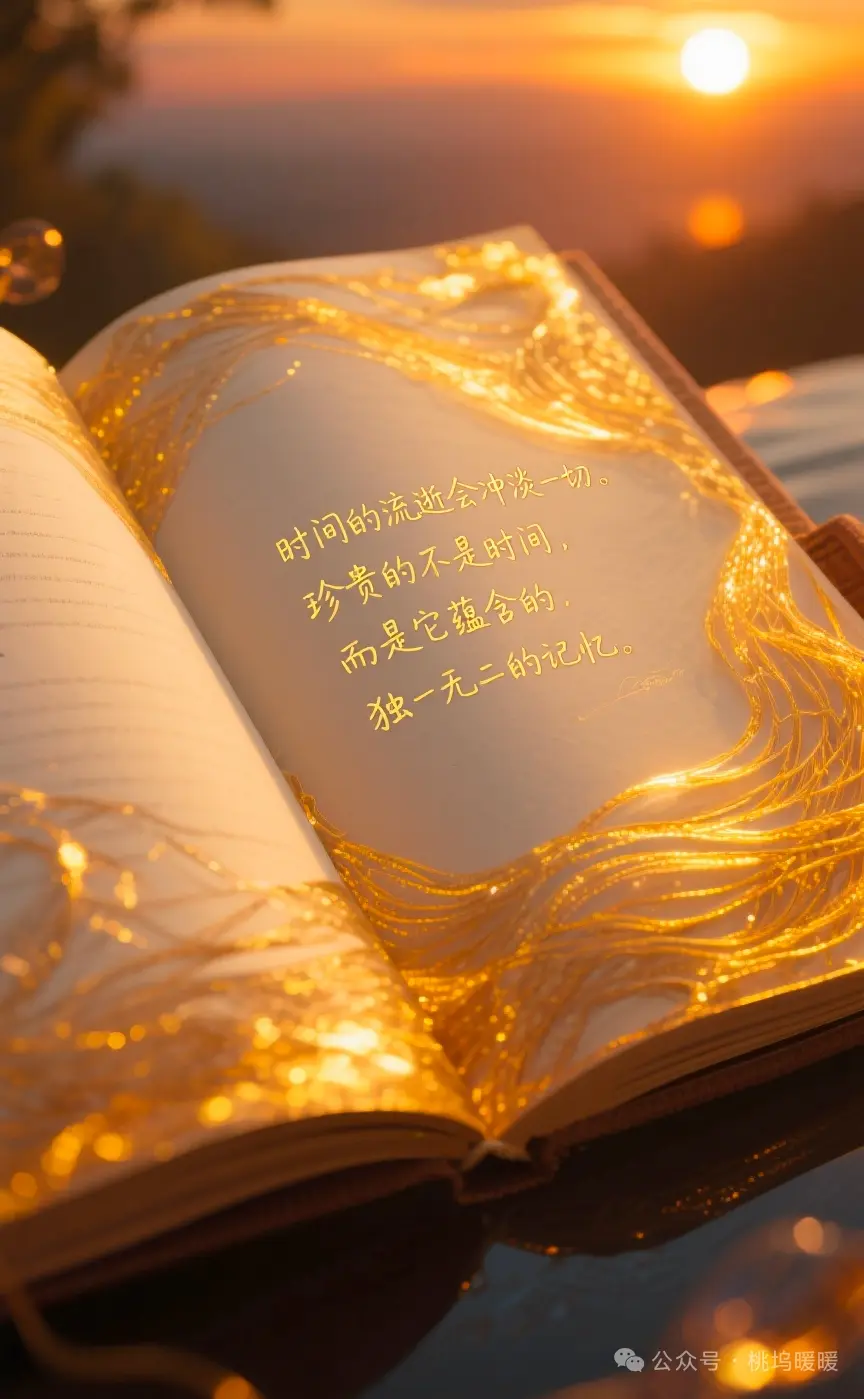 时间的流逝会冲淡一切。
珍贵的不是时间，
而是它蕴含的，
独一无二的记忆。
公众号·桃坞暖暖